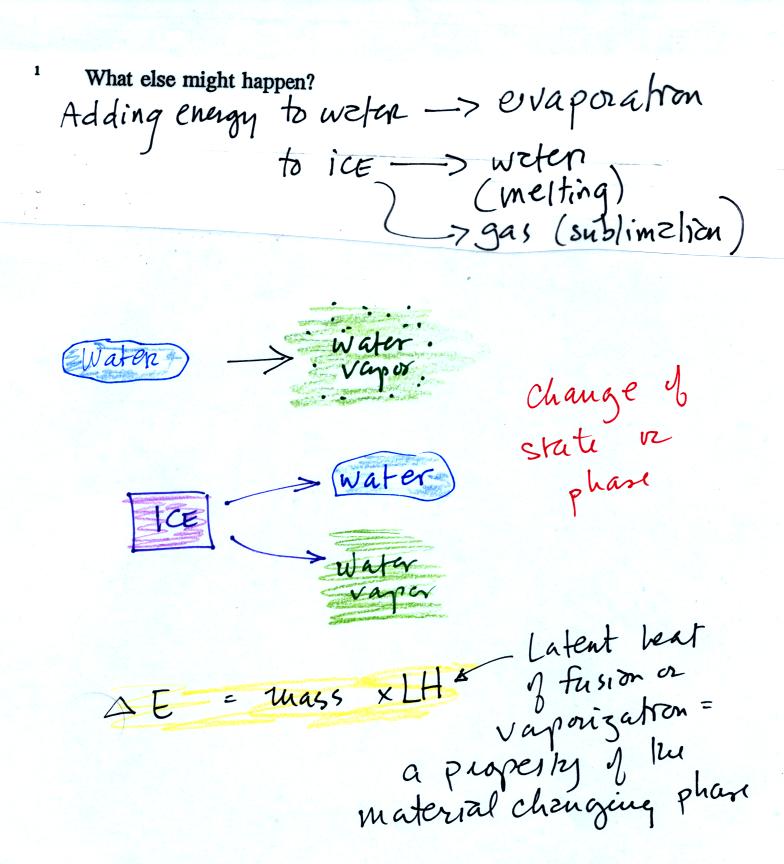 1 What else might happen?
Adding energy to water → evaporation
to ICE → water
(melting)
→ gas (sublimation)
Water → water
vapor
change of
state or
phase
ICE → water
→ water
vapor
Δ E = mass x LH
Latent heat
of fusion or
vaporization =
a property of the
material changing phase